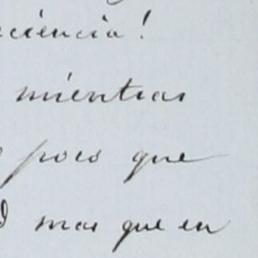 ciencia!
mientras
pues que
mas que en